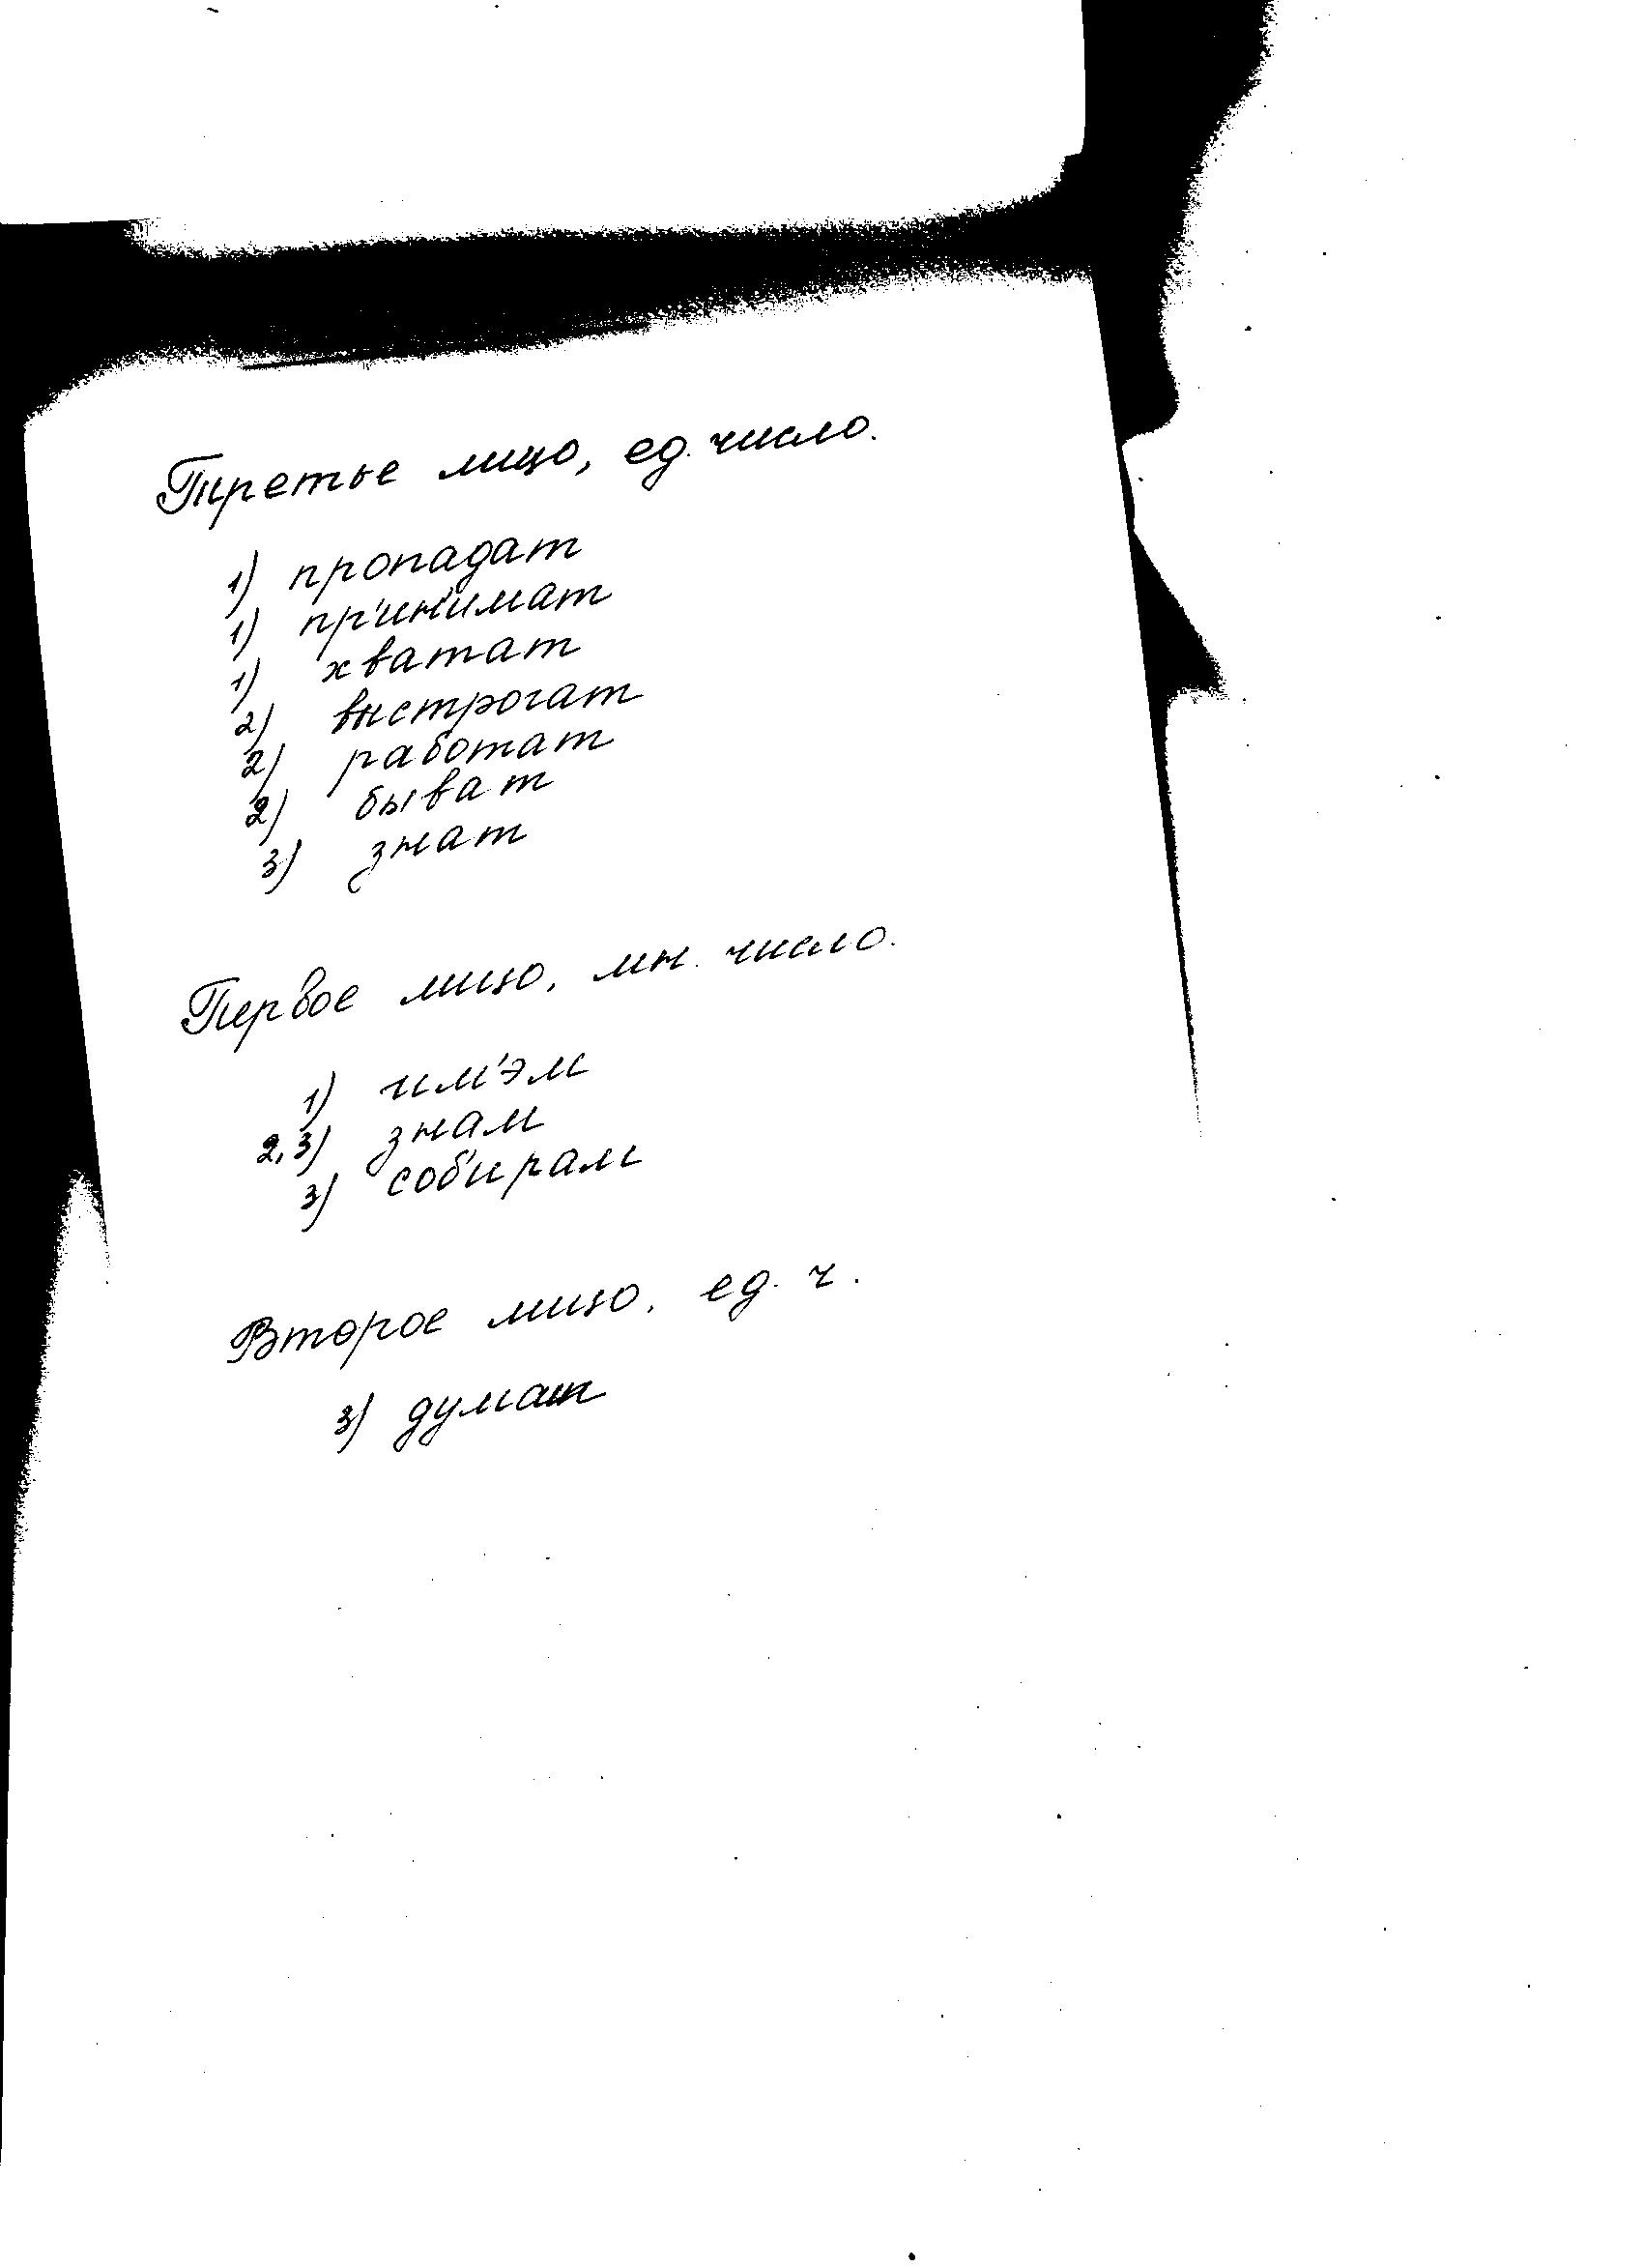 Третье лицо, ед. число.
1) пропадат
1) пр'ин'имат
1) хватат
2) выстрогат
2) работат
2) быват
3) знат
Первое лицо, мн. число.
1) им'эм
2,3) знам
3) соб'ирам
Второе лицо, ед. ч.
3) думаш